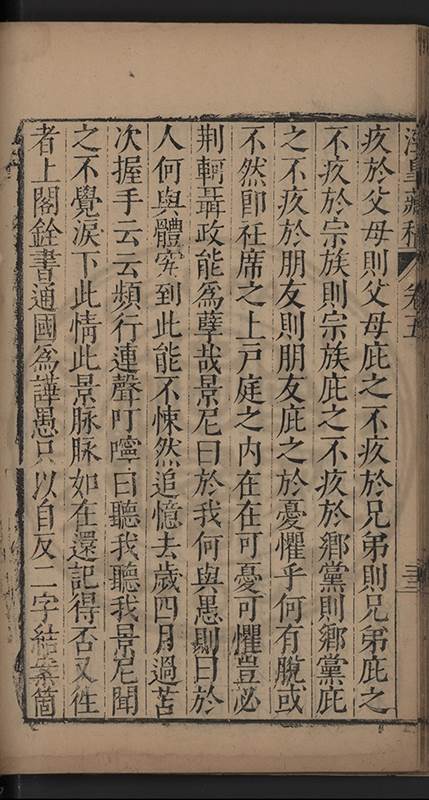 涇臯藏稿 卷五 三三
疚於父母則父母庇之不疚於兄弟則兄弟庇之
不疚於宗族則宗族庇之不疚於鄉黨則鄉黨庇
之不疚於朋友則朋友庇之於憂懼乎何有脫或
不然卽袵席之上戸庭之内在在可憂可懼豈必
荆軻聶政能爲孽哉景尼曰於我何與愚則曰於
人何與體究到此能不悚然追憶去歲四月過苦
次握手云云頻行連聲叮嚀曰聽我聽我景尼聞
之不覺淚下此情此景脉脉如在還記得否又徃
者上閣銓書通國爲譁愚只以自反二字結案箇